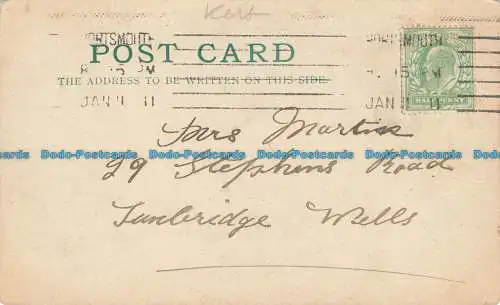 Kent
PORTSMOUTH PORTSMOUTH
8. 15 PM 8. 15 PM
JAN 11 11 JAN 11
POST CARD
THE ADDRESS TO BE WRITTEN ON THIS SIDE.
HALFPENNY
Mrs Martin
Dodo-Postcards Dodo-Postcards Dodo-Postcards Dodo-Postcards Dodo-Postcards
29 Stephens Road
Tunbridge Wells